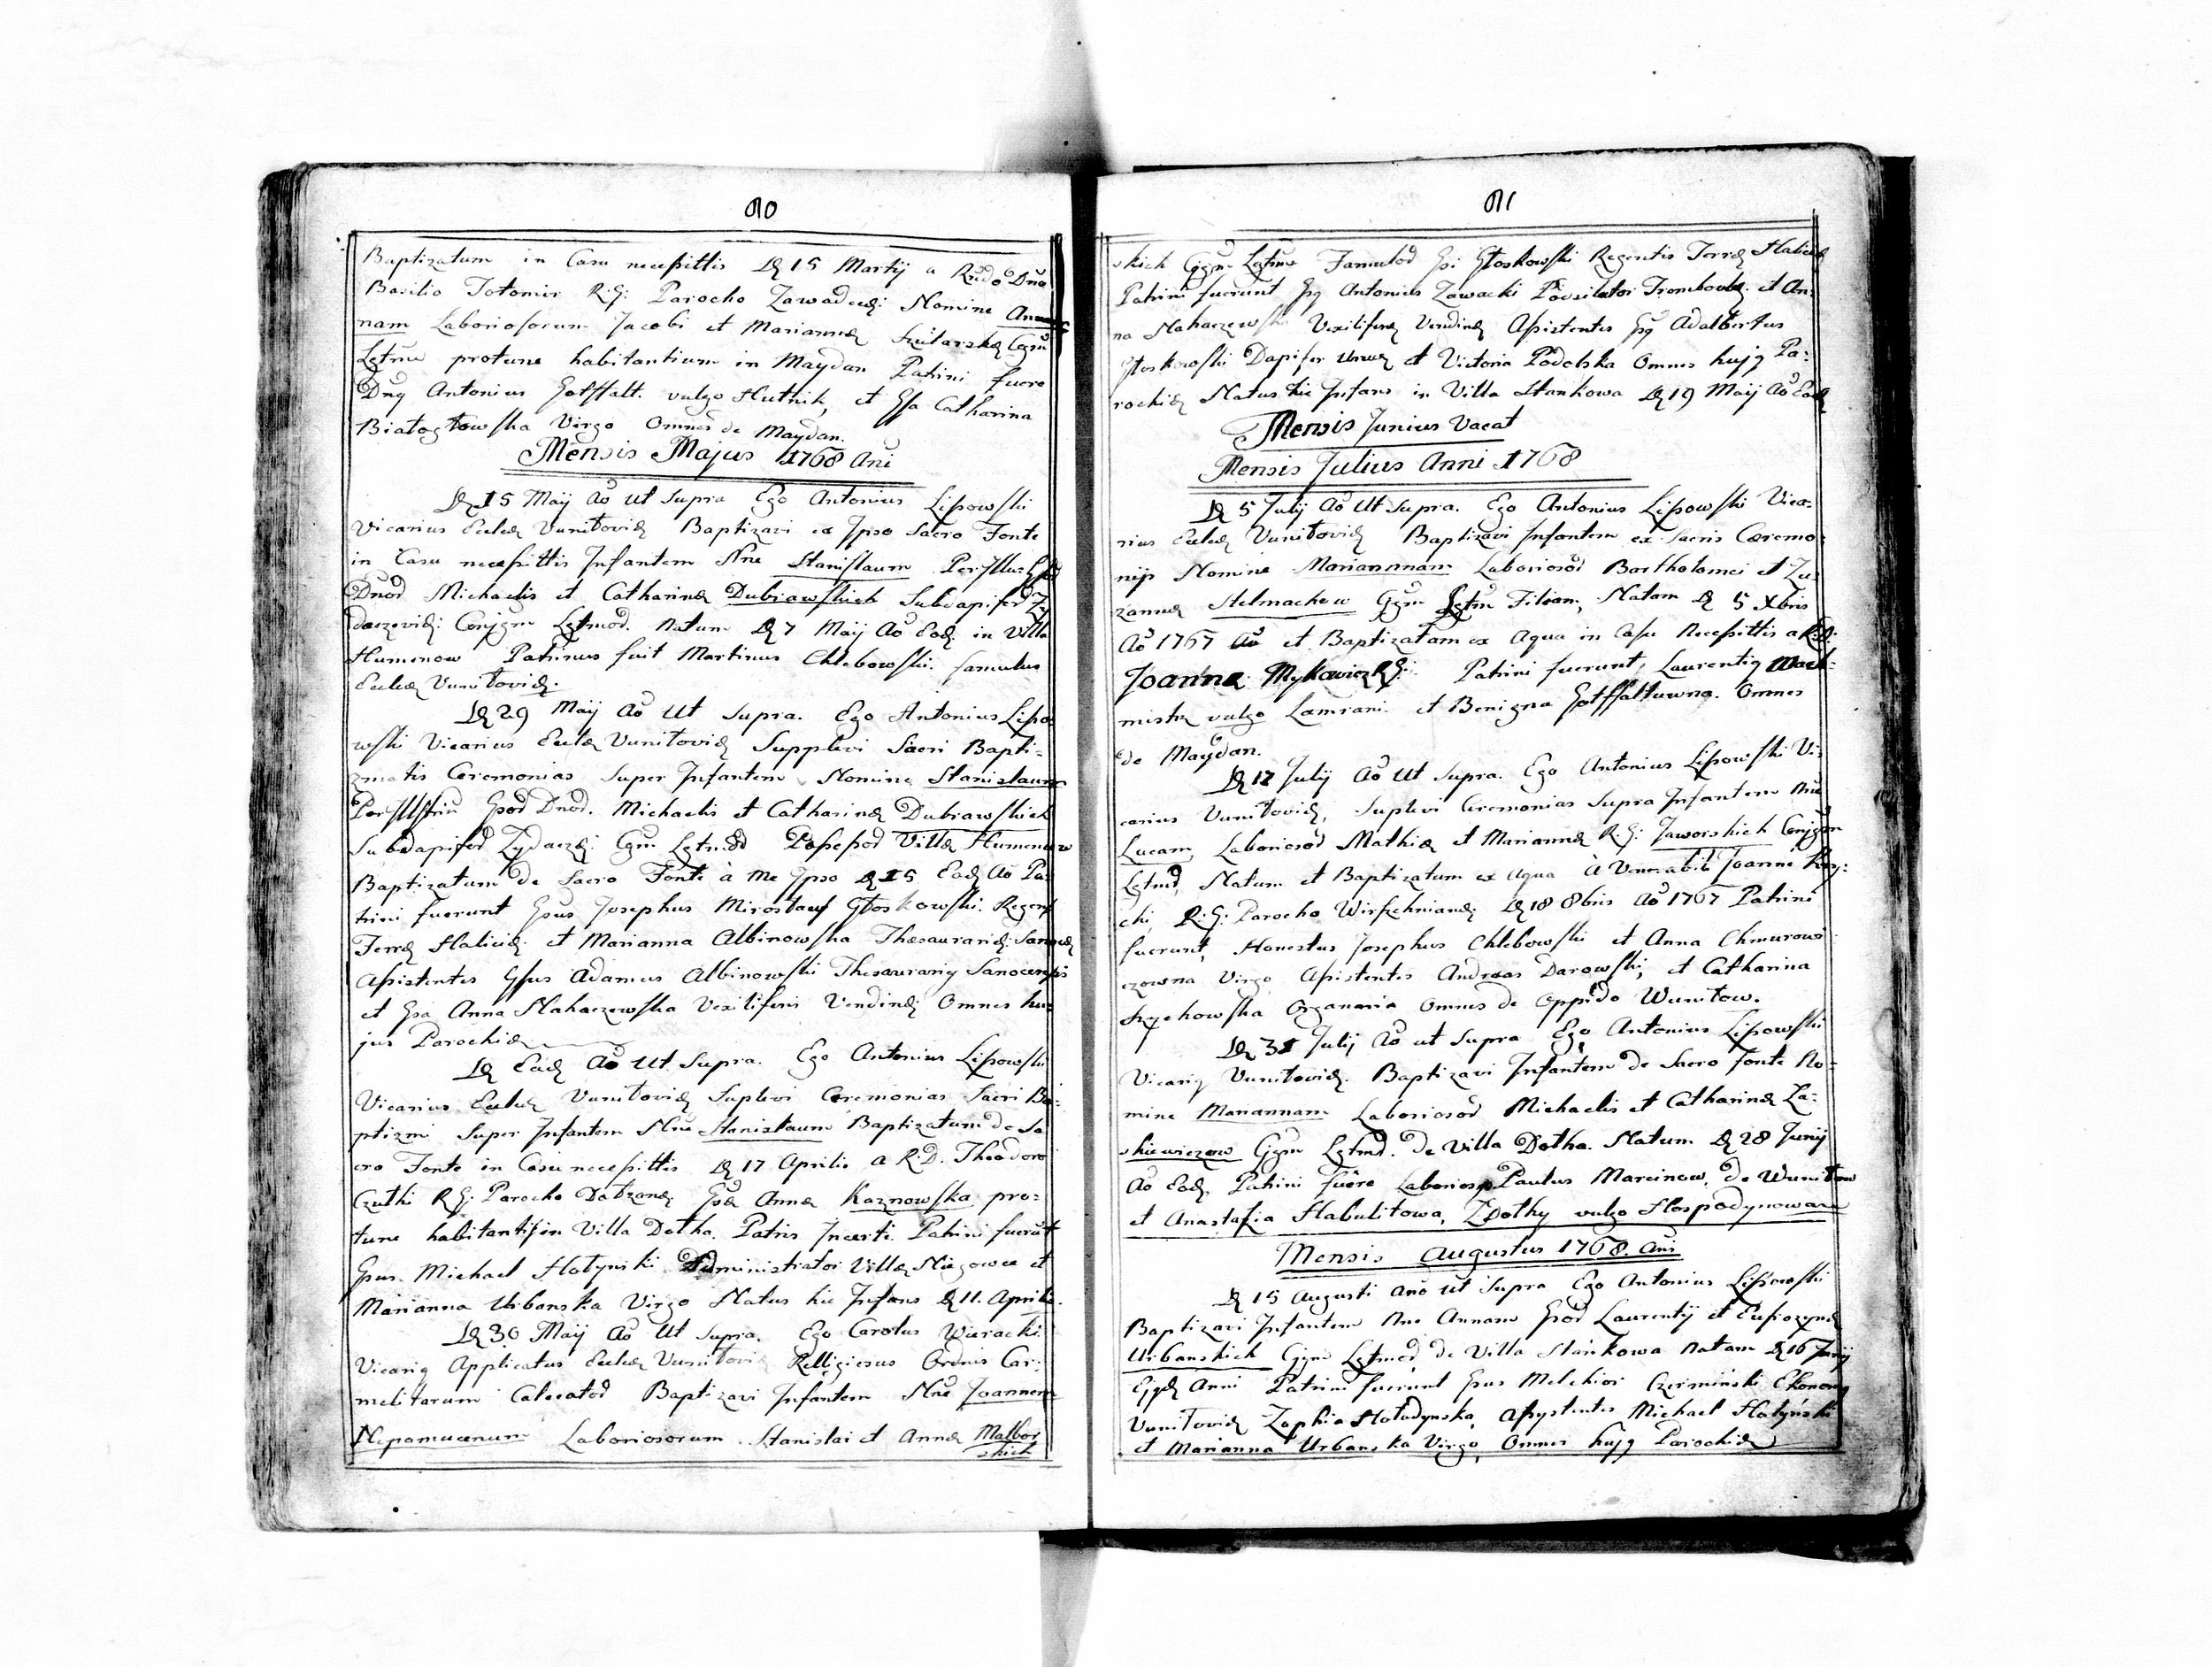 80
Baptizatum in Casu necessittis D 15 Martij a Rndo Dno
Basilio Totomir R: G: Parocho Zawadecz: Nomine An
nam Laboriosorum Jacobi et Mariannæ
Lgtme protunc habitantium in Maydan Patrini fuere
Dnus Antonius Gotffalt. vulgo Hutnik, et Gsa Catharina
Białogłowska Virgo Omnes de Maydan.
Mensis Majus 1768 Ani
D 15 Maij Ao ut Supra Ego Antonius Lipowski
Vicarius Ecclæ Vunilovien Baptizavi ex Ipso Sacro Fonte
in Casu necessittis Infantem Nne Stanislaum Perillus
Dnor Michaelis et Catharinæ Dubrawskich Subdapifer Zy
daczovien: Conjgm Lgtmor. Natum D 7 Maij Ao Eod: in Villa
Humenow Patrinus fuit Martinus Chlebowski. famulus
Ecclæ Vunilovien:
D 29 Maij Ao ut Supra. Ego Antonius Lipo
wski Vicarius Eclæ Vunilovien Supplevi Sacri Bapti=
zmatis Ceremonias Super Infantem Nomine Stanislaum
Perillstriu Gsor Dnor. Michaelis et Catharinæ Dubrawskich
Subdapifer Zydacz: Cgm Lgtmor Possessor Villæ Humenow
Baptizatum de Sacro Fonte à Me Ipso D 15 Eod Ao Pa:
trini fuerunt Gsus Josephus Mirosław Głoskowski. Regens
Terræ Halicien. et Marianna Albinowska Thesauraria
Assistentes Gsus Adamus Albinowski Thesaurarius
et Gsa Anna Mahaczewska Vexiliferis Vendinen: Omnes hu=
jus Parochiæ
D Eod Ao ut Supra. Ego Antonius Lipowski
Vicarius Ecclæ Vunilovien Suplevi Ceremonias Sacri Ba:
ptizmi Super Infantem Nne Stanislaum Baptizatum de Sa
cro Fonte in Casu necessittis D 17 Aprilis a R: D. Theodoro
Czutki R G: Parocho Gsæ Annæ Kaznowska pro=
tunc habitantis in Villa Dołha. Patris Incerti. Patrini fuerut
Gsus. Michael Hołynski Administrator Villæ Niegowce et
Marianna Urbanska Virgo Natus hic Infans D 11. Aprilis.
D 30 Maij Ao ut Supra. Ego Carolus Wieracki
Vicarius Applicatus Ecclæ Vunilovi Relligiosus Ordnis Car:
melitarum Calceator Baptizavi Infantem Nne Joannem
Nepomucenum Laboriosorum Stanislai et Annæ Malbor
skich
81
skich Cjgm Lgtmo Famulor Gsi Głoskowski Regentis Terræ Halicien
Patrini fuerunt Gsus Antonius Zawacki et An:
na Mahaczewska Vexiliferæ Vendinen Assistentes Gsus Adalbertus
Głoskowski Dapifer et Victoria Podolska Omnes hujus Pa:
rochiæ Natus hic Infans in Villa Stankowa D 19 Maij Ao Eod
Mensis Junius Vacat
Mensis Julius Anni 1768
D 5 Julij Ao ut Supra. Ego Antonius Lipowski Vica=
rius Ecclæ Vunilovien Baptizavi Infantem ex Sacris Cæremo:
nijs Nomine Mariannam Laborioror Bartholomei et Zu:
zannæ Stelmachow Cjgm Lgtm Filiam, Natam D 5 Xbris
Ao 1767 et Baptizatam ex Aqua in Casu Necessittis a R: D:
Joanne Mykowicz R G: Patrini fuerunt, Laurentius
mistrz vulgo Lamrani et Benigna Gotffaltuwna. Omnes
de Maydan.
D 17 Julij Ao ut Supra. Ego Antonius Lipowski Vi:
carius Vunilovien, Suplevi Ceremonias Supra Infantem Nne
Lucam, Laborioror Mathiæ et Mariannæ R. G: Jaworskich Conjgm
Lgtmr, Natum et Baptizatum ex Aqua à Venerabili Joanne
cki, R: G: Parocho D 18 8bris Ao 1767 Patrini
fuerunt, Honestus Josephus Chlebowski et Anna Chmurowi
czowna Virgo Assistentes Andreas Darowski, et Catharina
Organaria Omnes de Oppido Wunilow.
D 31 Julij Ao ut Supra Ego Antonius Lipowski
Vicarius Vunilovien. Baptizavi Infantem de Sacro fonte No=
mine Mariannam Laborioror Michaelis et Catharinæ La=
skiewiczow Cjgm Lgtmr. de Villa Dołha. Natum D 28 Junij
Ao Eod. Patrini fuere Laboriosus Paulus Marcinow, de Wunilow
et Anastazia Habulitowa, Z Dołhy vulgo Hospodynowa
Mensis Augustus 1768. Ani
D 15 Augusti Ano ut Supra Ego Antonius Lipowski
Baptizavi Infantem Nne Annam Gsor Laurentij et Eufrozynæ
Urbanskich Cjgm Lgtmor, de Villa Stankowa Natam D 16 Junij
Ejgd Anni Patrini fuerunt Gsus Melchior Czerminski Ekonomus
Vunilovien Zophia Hołodynska, Assystentes Michael Hołyński
et Marianna Urbanska Virgo, Omnes hujus Parochiæ